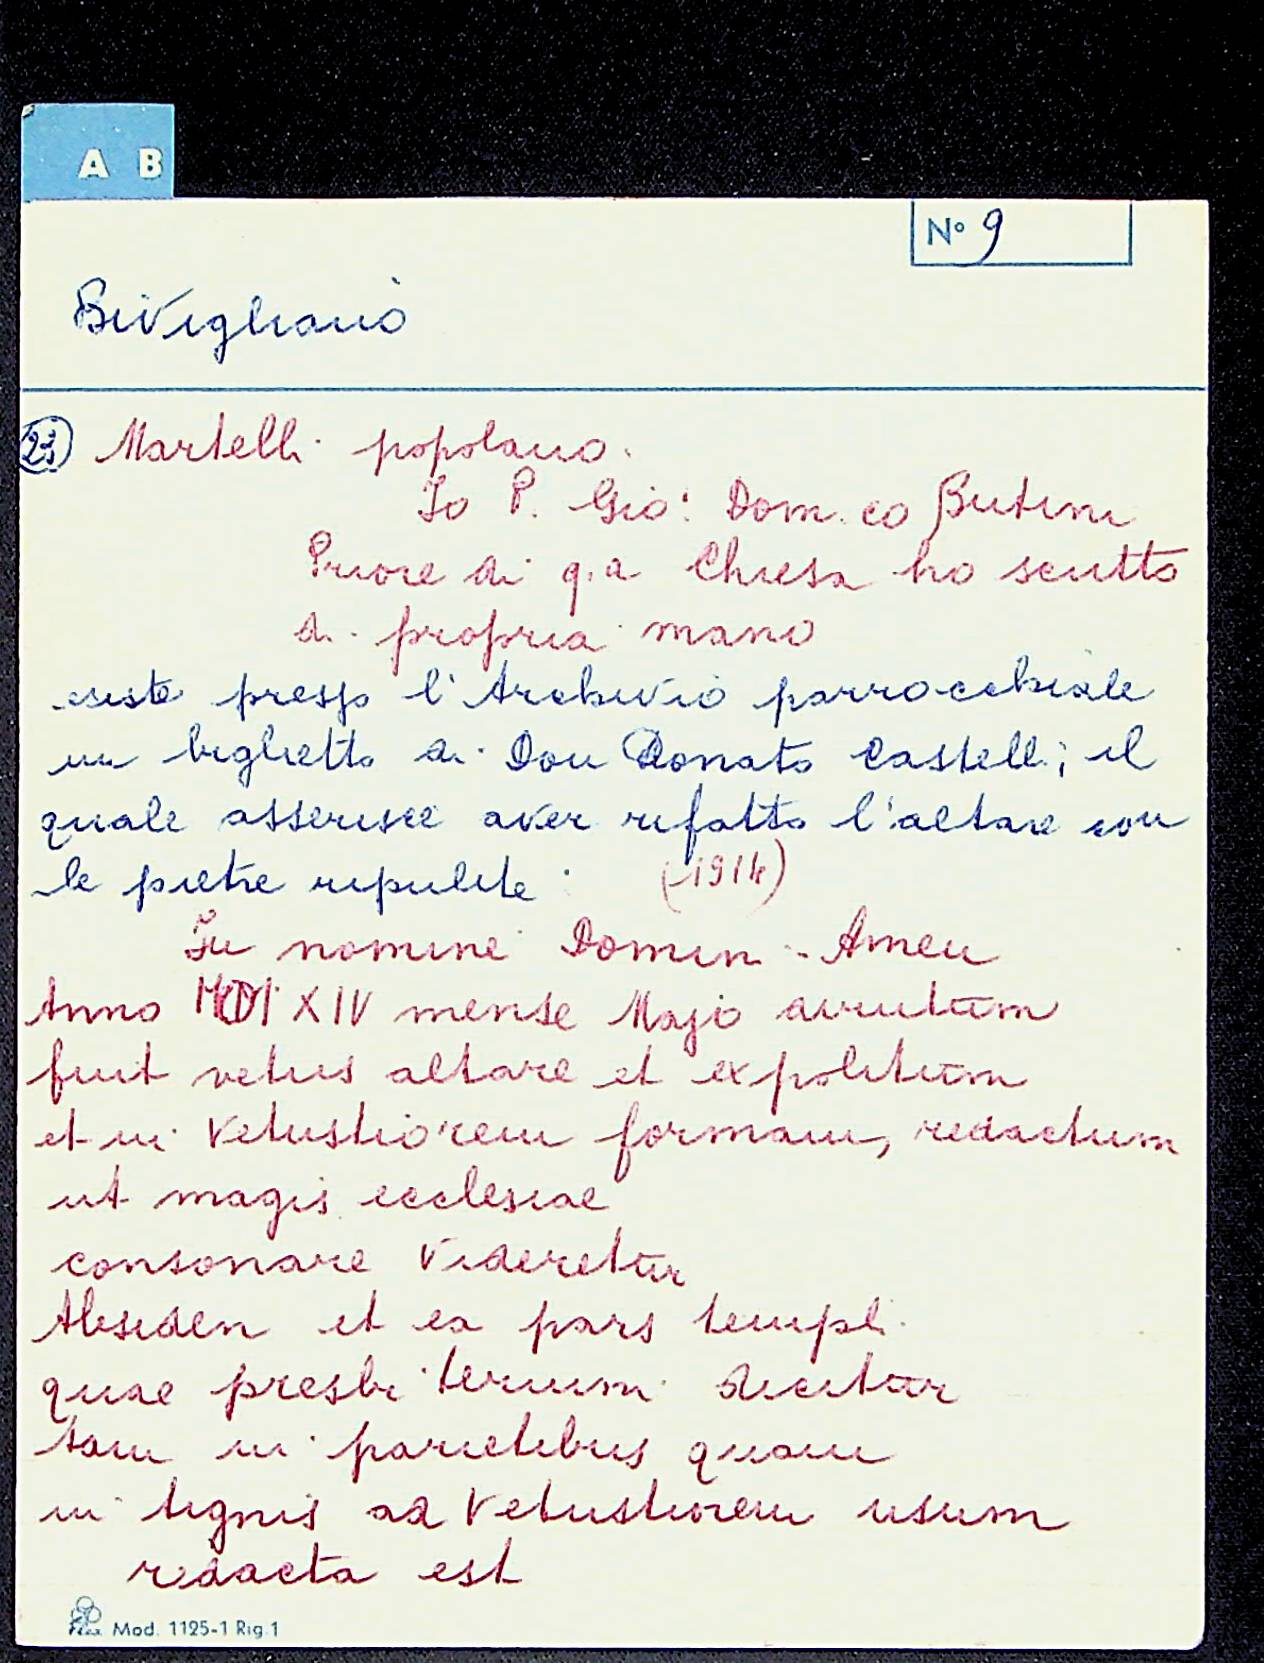 A B
N° 9
Bivigliano
23 Martelli popolano.
Io P. Gio: Dom.co Butini
Priore di q.a Chiesa ho scritto
di propria mano
esiste presso l'Archivio parrocchiale
un biglietto di Don Donato Castelli; il
quale asserisce aver rifatto l'altare con
le pietre ripulite (1914)
In nomine Domini - Amen
Anno XIV mense Majo avrutum
fuit vetus altare et expolitum
et in vetustiorem formam, redactum
ut magis ecclesiae
consonare videretur
Absiden et ea pars templi
quae presbiterium dicitur
tam in parietibus quam
in tignis ad vetustiorem usum
redacta est
Mod. 1125-1 Rig.1